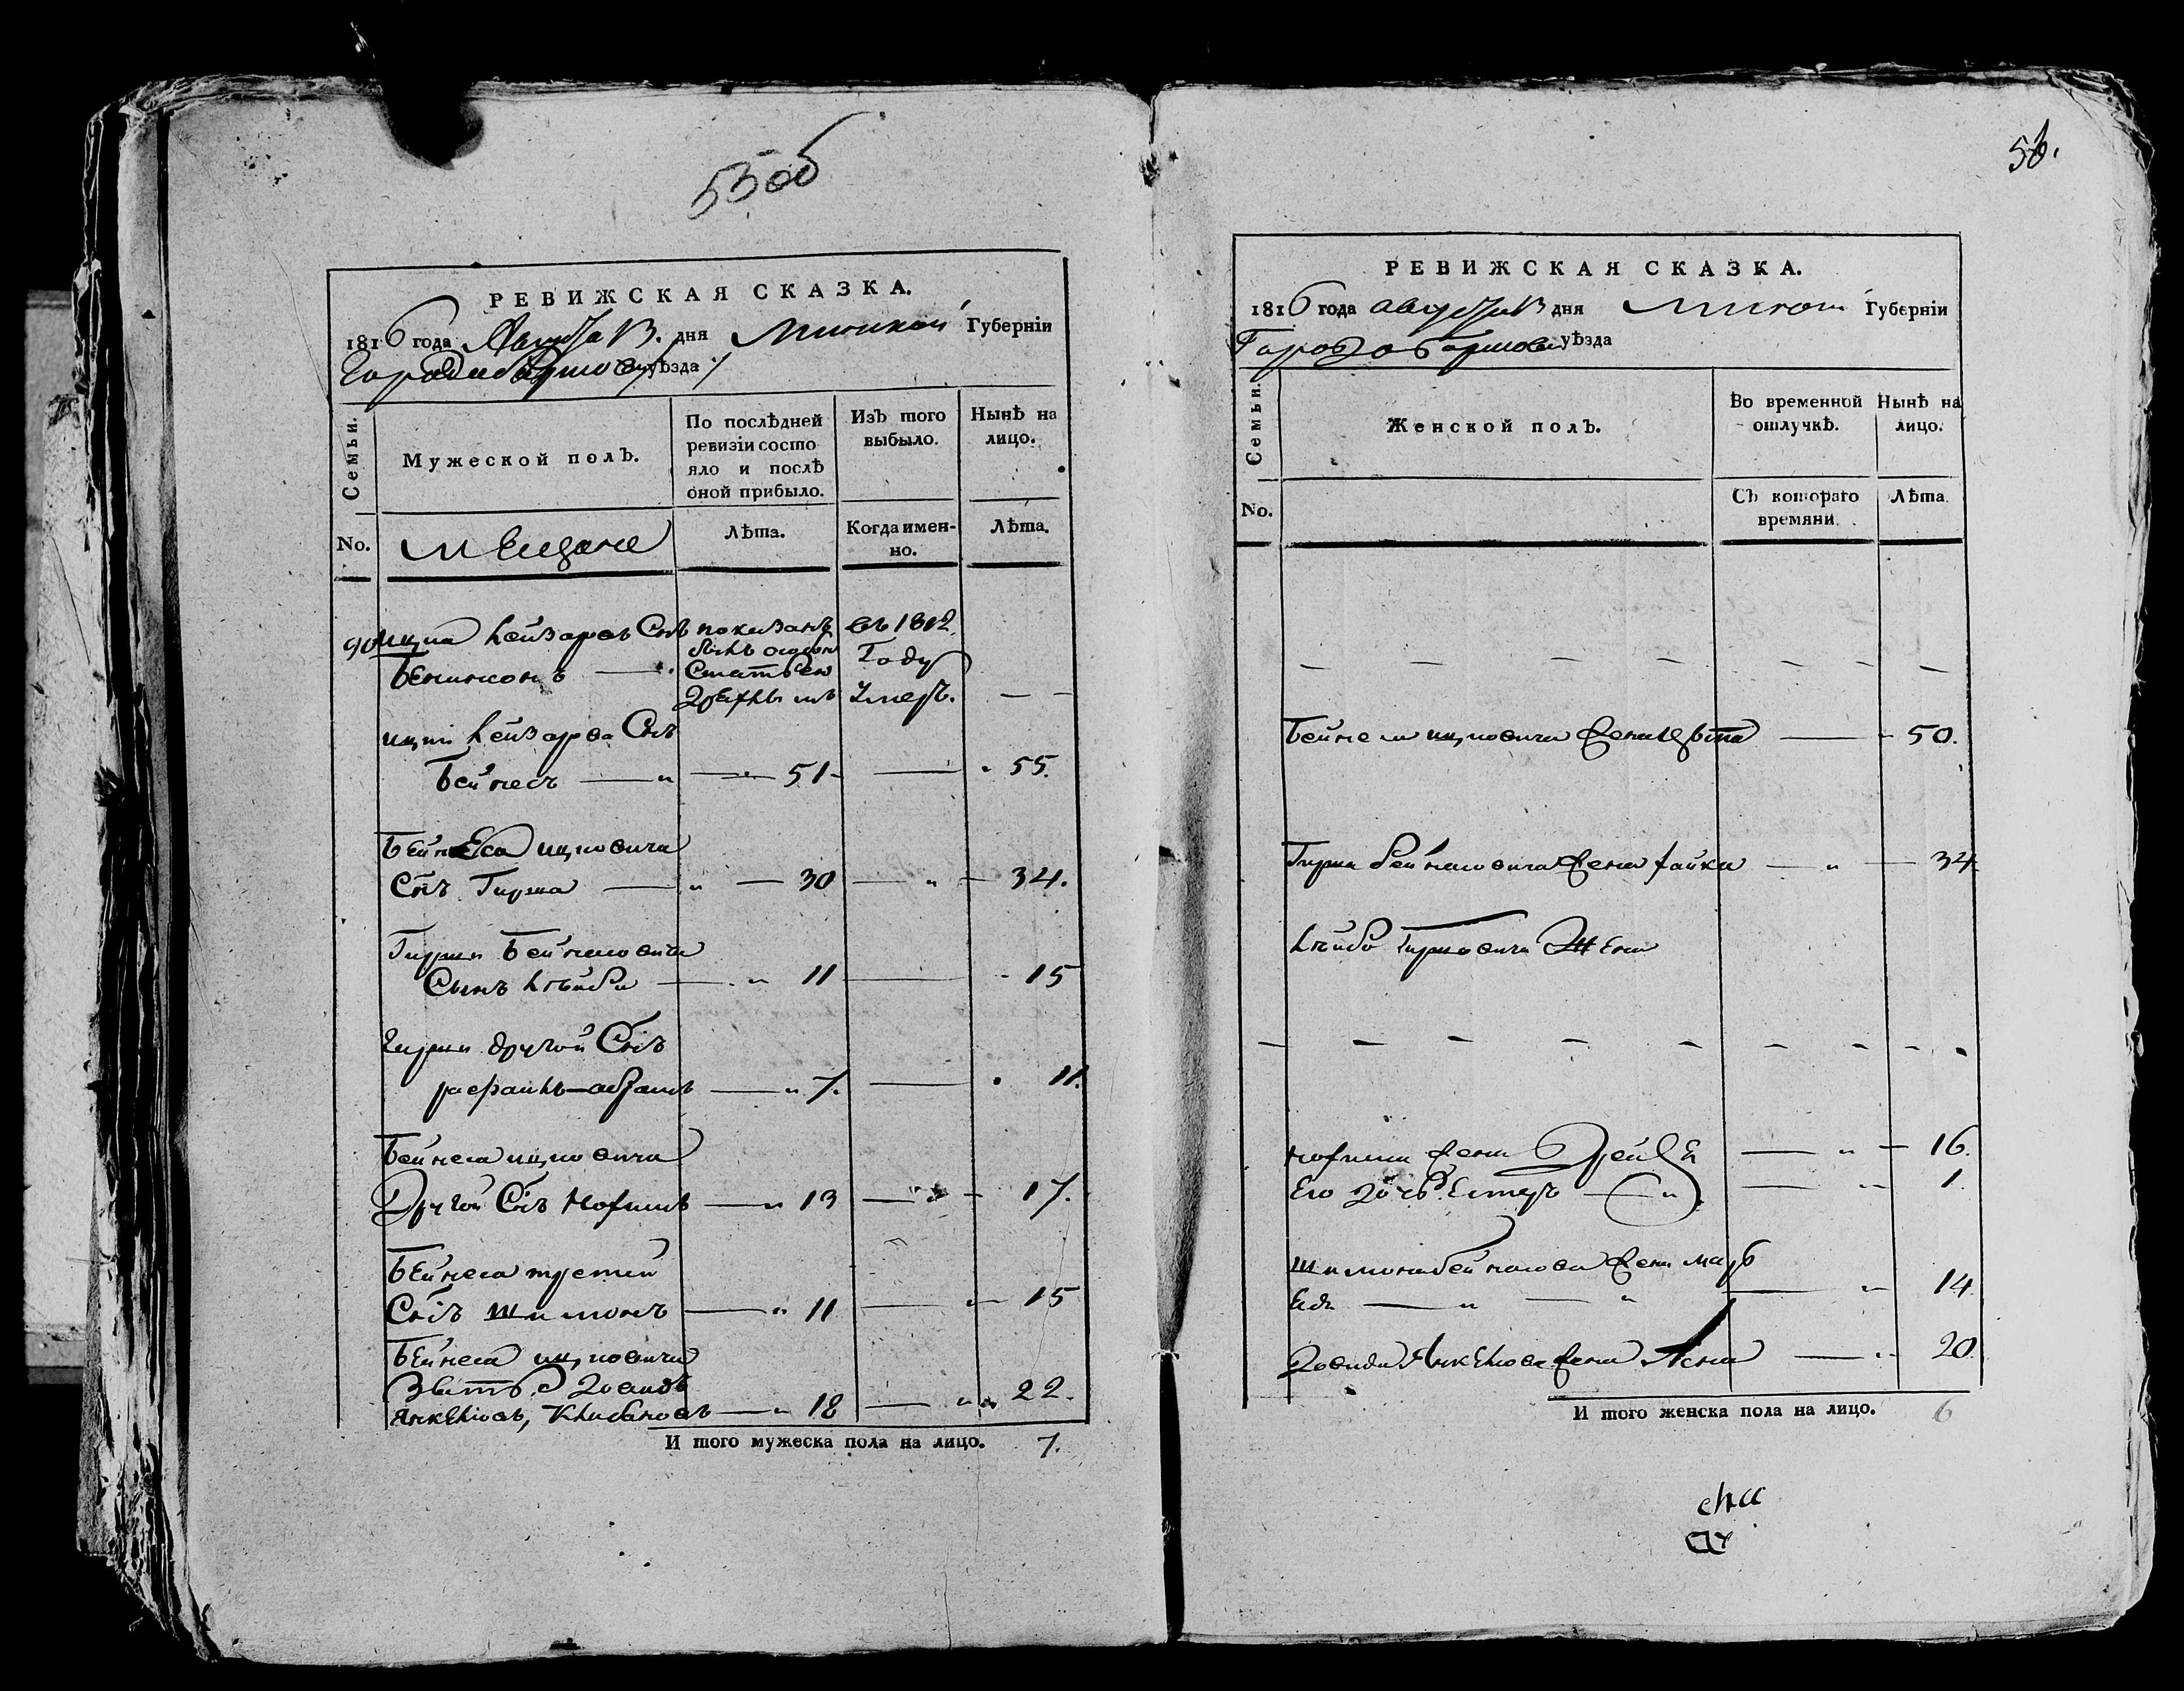 55об
РЕВИЖСКАЯ СКАЗКА.
1816 года Августа 13. дня Минской Губернiи
Города Борисова уѣзда
Семьи.
Мужеской полъ.
По послѣдней ревизiи состояло и послѣ оной прибыло.
Изъ того выбыло.
Нынѣ на лицо.
No.
Мещане
Лѣта.
Когда именно.
Лѣта.
90 Ицка Лейзаровъ Снъ показанъ въ 1812
Году
умеръ. — —
Ицки Лейзарова Снъ
Бейнесъ — 51 — 55.
Бейнеса Ицковича
Снъ Гирша — 30 — 34.
Гирши Бейнесовича
Сынъ Лейба — 11 — 15
Гирши другой Снъ
— 7. — 11.
Бейнеса Ицковича
Другой Снъ Нохимъ — 13 — 17.
Бейнеса третей
Снъ Шимонъ — 11 — 15
Бейнеса Ицковича
Зять Довидъ
Янкелiовъ, — 18 — 22.
И того мужеска пола на лицо. 7.
56.
РЕВИЖСКАЯ СКАЗКА.
1816 года августа 13 дня Минской Губернiи
Города Борисова уѣзда
Семьи.
Женской полъ.
Во временной отлучкѣ.
Нынѣ на лицо.
No.
Съ котораго времяни.
Лѣта.
Бейнеса Ицковича жена Цвѣта — 50.
Гирши Бейнесовича жена Хайка — 34
Лейбы Гиршовича жена
Нохима жена Дрейзя — 16.
Его дочь Естеръ — 1.
Шимона Бейнесова жена
— 14
Довида Янкелiова жена — 20.
И того женска пола на лицо. 6